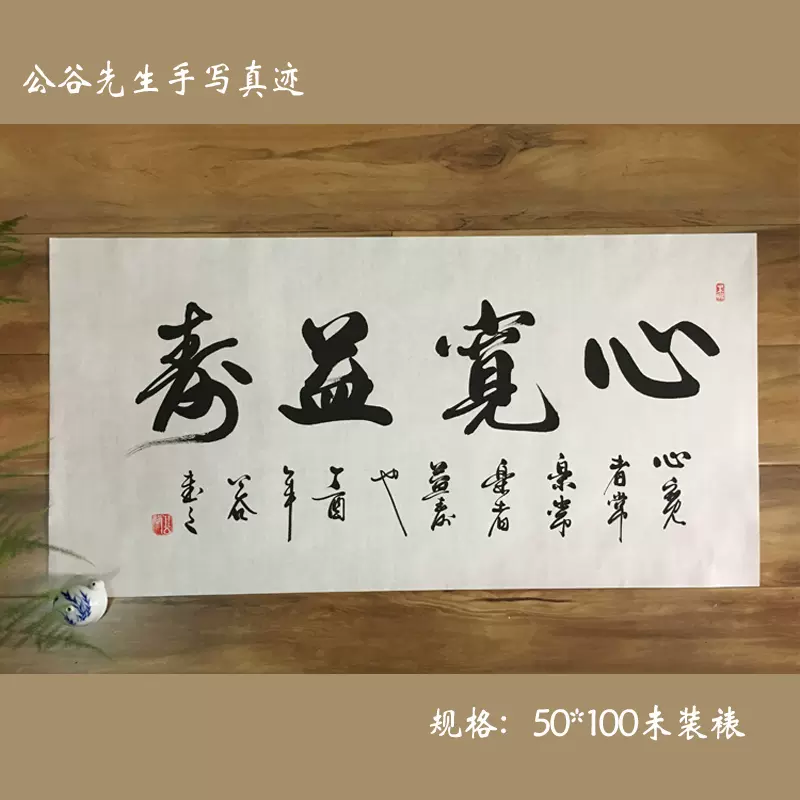 公谷先生手写真迹
心寬益寿
心寬
者常
樂常
樂者
益寿
也
丁酉
年
公谷
書之
规格：50*100未装裱